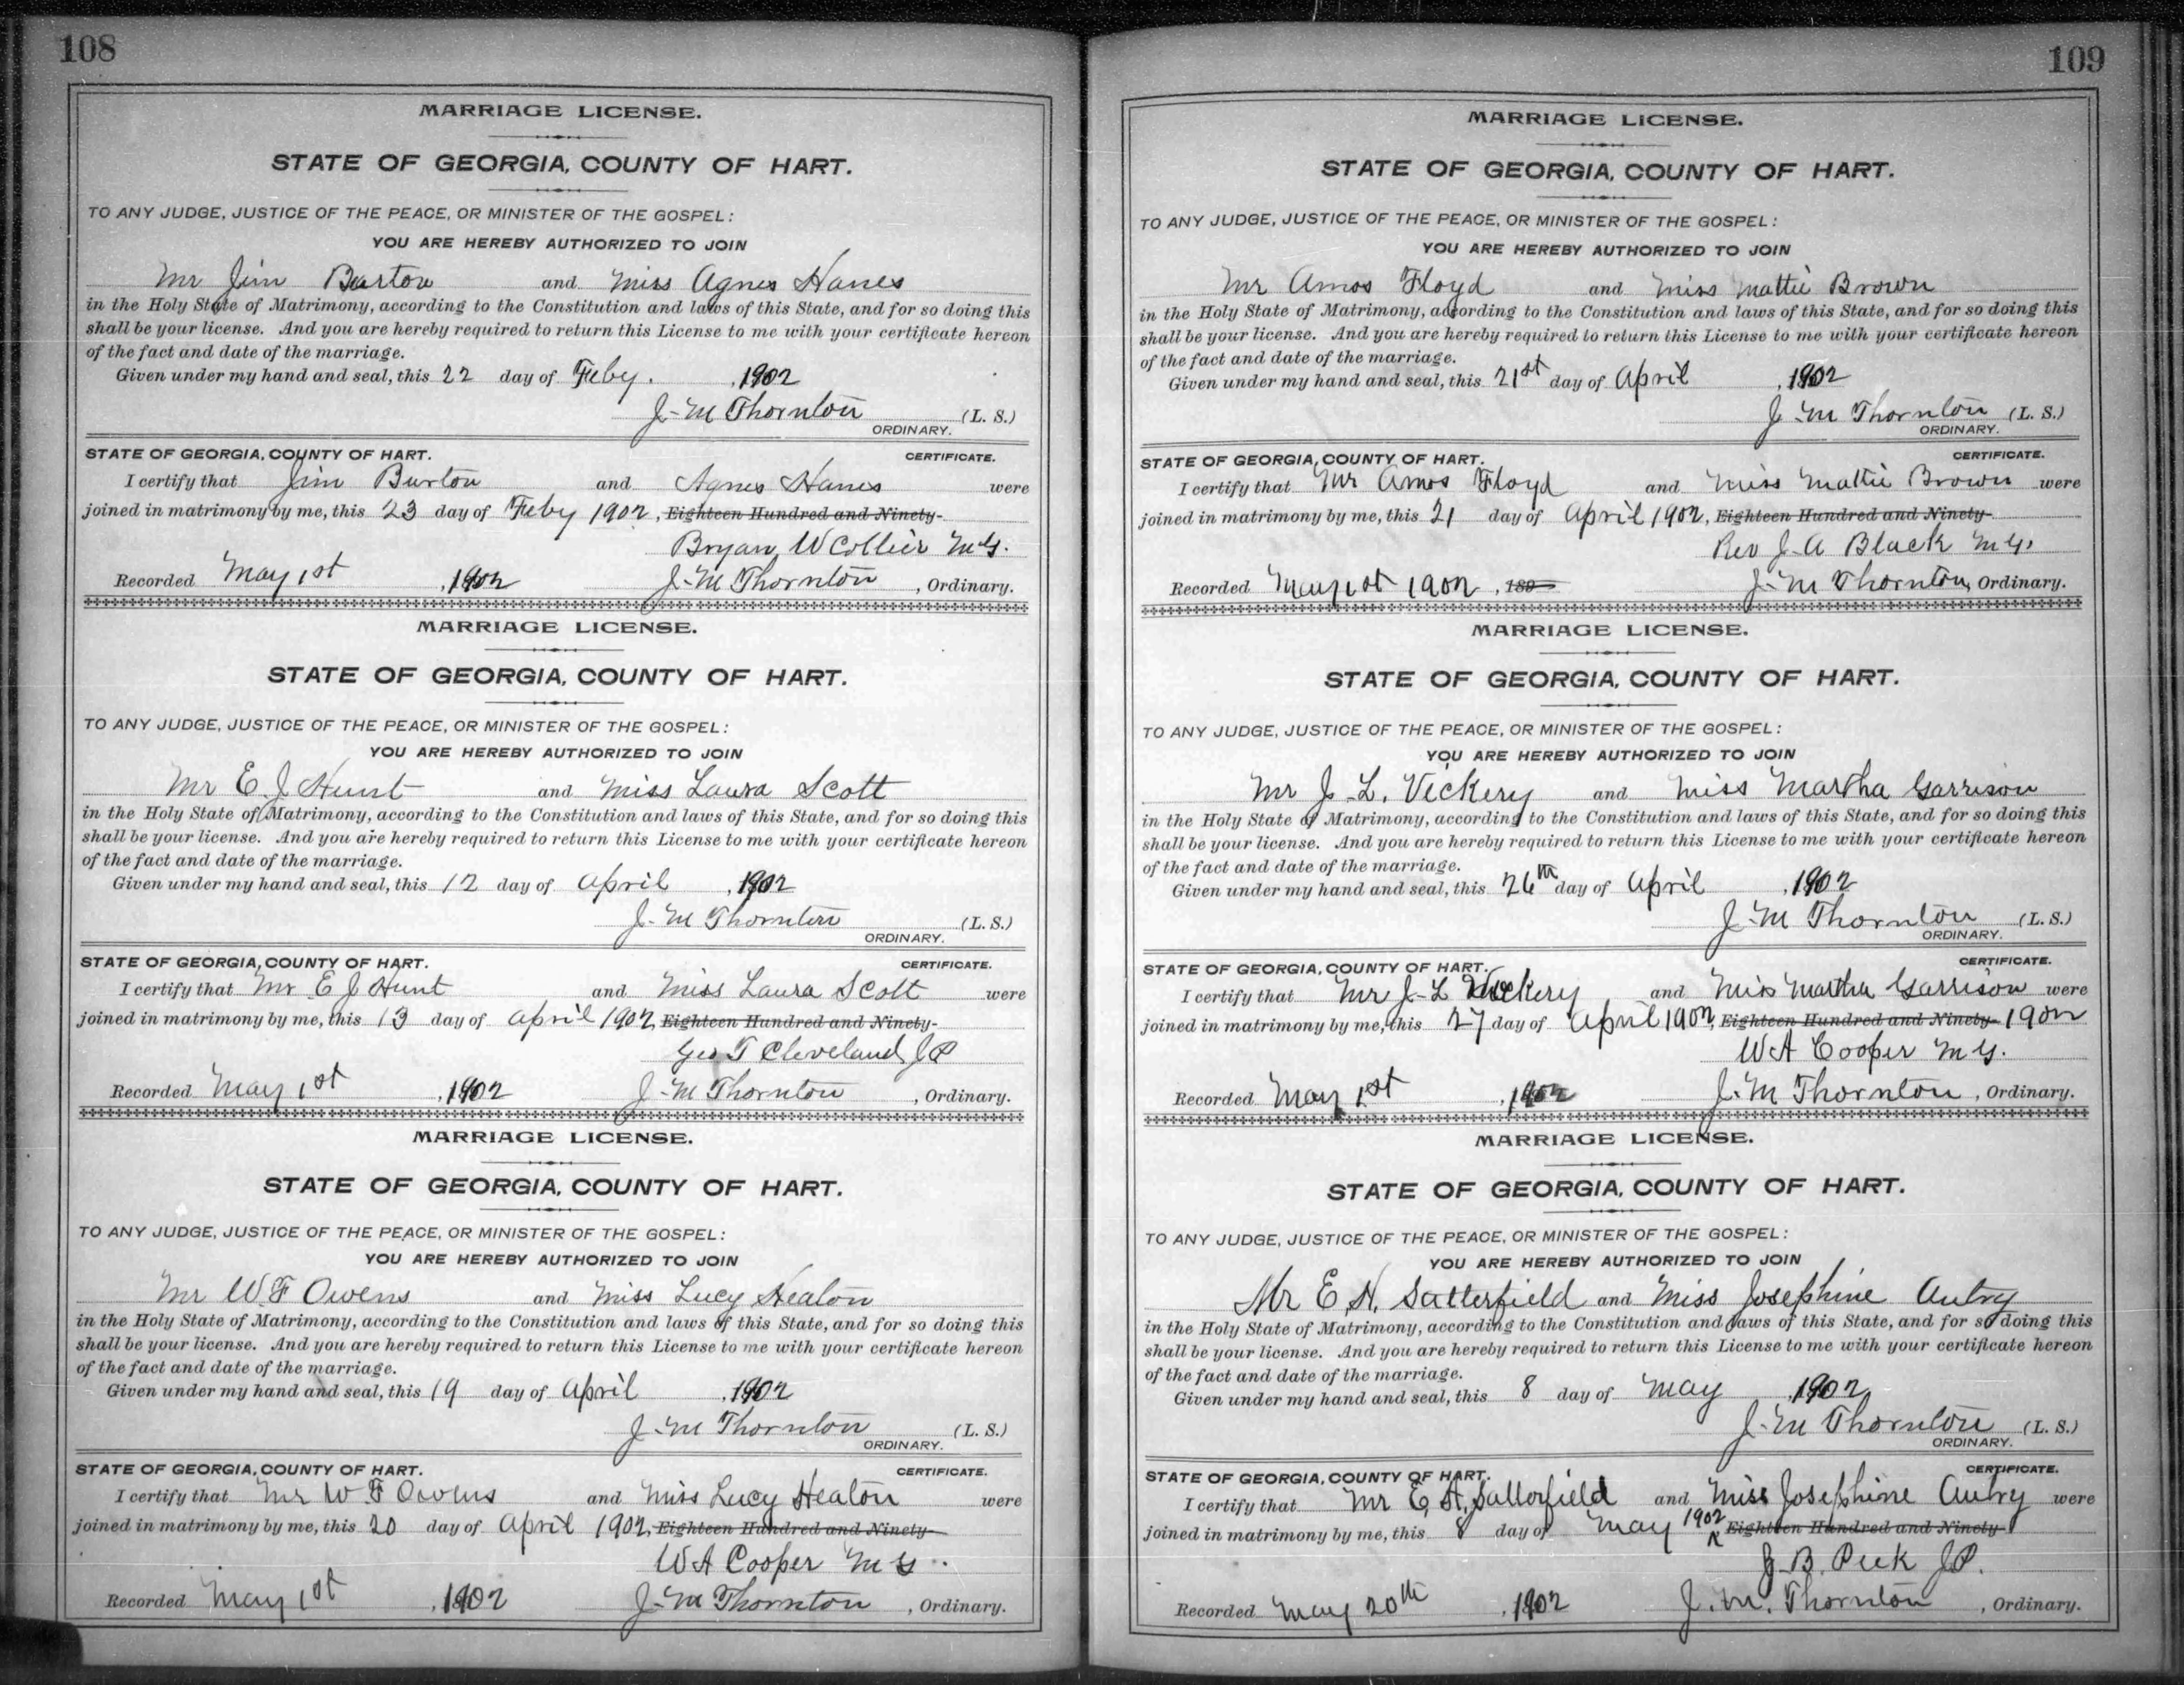 108
MARRIAGE LICENSE.
STATE OF GEORGIA, COUNTY OF HART.
TO ANY JUDGE, JUSTICE OF THE PEACE, OR MINISTER OF THE GOSPEL:
YOU ARE HEREBY AUTHORIZED TO JOIN
Mr Jim Burton and Miss Agnes Hanes
in the Holy State of Matrimony, according to the Constitution and laws of this State, and for so doing this
shall be your license. And you are hereby required to return this License to me with your certificate hereon
of the fact and date of the marriage.
Given under my hand and seal, this 22 day of Feby. , 1902
J. M Thornton (L. S.)
ORDINARY.
STATE OF GEORGIA, COUNTY OF HART. CERTIFICATE.
I certify that Jim Burton and Agnes Hanes were
joined in matrimony by me, this 23 day of Feby 1902, Eighteen Hundred and Ninety-
Bryan W Collier M.G.
Recorded May 1st , 1902 J. M Thornton , Ordinary.
MARRIAGE LICENSE.
STATE OF GEORGIA, COUNTY OF HART.
TO ANY JUDGE, JUSTICE OF THE PEACE, OR MINISTER OF THE GOSPEL:
YOU ARE HEREBY AUTHORIZED TO JOIN
Mr E. J Hunt and Miss Laura Scott
in the Holy State of Matrimony, according to the Constitution and laws of this State, and for so doing this
shall be your license. And you are hereby required to return this License to me with your certificate hereon
of the fact and date of the marriage.
Given under my hand and seal, this 12 day of April , 1902
J. M Thornton (L. S.)
ORDINARY.
STATE OF GEORGIA, COUNTY OF HART. CERTIFICATE.
I certify that Mr E J Hunt and Miss Laura Scott were
joined in matrimony by me, this 13 day of April 1902, Eighteen Hundred and Ninety-
Geo T Cleveland J P
Recorded May 1st , 1902 J. M Thornton , Ordinary.
MARRIAGE LICENSE.
STATE OF GEORGIA, COUNTY OF HART.
TO ANY JUDGE, JUSTICE OF THE PEACE, OR MINISTER OF THE GOSPEL:
YOU ARE HEREBY AUTHORIZED TO JOIN
Mr W. F Owens and Miss Lucy Heaton
in the Holy State of Matrimony, according to the Constitution and laws of this State, and for so doing this
shall be your license. And you are hereby required to return this License to me with your certificate hereon
of the fact and date of the marriage.
Given under my hand and seal, this 19 day of April , 1902
J. M Thornton (L. S.)
ORDINARY.
STATE OF GEORGIA, COUNTY OF HART. CERTIFICATE.
I certify that Mr W F Owens and Miss Lucy Heaton were
joined in matrimony by me, this 20 day of April 1902, Eighteen Hundred and Ninety-
W A Cooper M G.
Recorded May 1st , 1902 J. M Thornton , Ordinary.
109
MARRIAGE LICENSE.
STATE OF GEORGIA, COUNTY OF HART.
TO ANY JUDGE, JUSTICE OF THE PEACE, OR MINISTER OF THE GOSPEL:
YOU ARE HEREBY AUTHORIZED TO JOIN
Mr Amos Floyd and Miss Mattie Brown
in the Holy State of Matrimony, according to the Constitution and laws of this State, and for so doing this
shall be your license. And you are hereby required to return this License to me with your certificate hereon
of the fact and date of the marriage.
Given under my hand and seal, this 21st day of April , 1902
J. M Thornton (L. S.)
ORDINARY.
STATE OF GEORGIA, COUNTY OF HART. CERTIFICATE.
I certify that Mr Amos Floyd and Miss Mattie Brown were
joined in matrimony by me, this 21 day of April 1902, Eighteen Hundred and Ninety-
Rev J. A Black M G.
Recorded May 1st 1902 , 189 J. M Thornton, Ordinary.
MARRIAGE LICENSE.
STATE OF GEORGIA, COUNTY OF HART.
TO ANY JUDGE, JUSTICE OF THE PEACE, OR MINISTER OF THE GOSPEL:
YOU ARE HEREBY AUTHORIZED TO JOIN
Mr J. L. Vickery and Miss Martha Garrison
in the Holy State of Matrimony, according to the Constitution and laws of this State, and for so doing this
shall be your license. And you are hereby required to return this License to me with your certificate hereon
of the fact and date of the marriage.
Given under my hand and seal, this 26th day of April , 1902
J. M Thornton (L. S.)
ORDINARY.
STATE OF GEORGIA, COUNTY OF HART. CERTIFICATE.
I certify that Mr J. L Vickery and Miss Martha Garrison were
joined in matrimony by me, this 27 day of April 1902, Eighteen Hundred and Ninety- 1902
W A Cooper M G.
Recorded May 1st , 1902 J. M Thornton , Ordinary.
MARRIAGE LICENSE.
STATE OF GEORGIA, COUNTY OF HART.
TO ANY JUDGE, JUSTICE OF THE PEACE, OR MINISTER OF THE GOSPEL:
YOU ARE HEREBY AUTHORIZED TO JOIN
Mr E. H. Satterfield and Miss Josephine Autry
in the Holy State of Matrimony, according to the Constitution and laws of this State, and for so doing this
shall be your license. And you are hereby required to return this License to me with your certificate hereon
of the fact and date of the marriage.
Given under my hand and seal, this 8 day of May , 1902
J. M Thornton (L. S.)
ORDINARY.
STATE OF GEORGIA, COUNTY OF HART. CERTIFICATE.
I certify that Mr E. H. Satterfield and Miss Josephine Autry were
joined in matrimony by me, this 8 day of May 1902 Eighteen Hundred and Ninety-
J. B. Peek J P.
Recorded May 20th , 1902 J. M. Thornton , Ordinary.